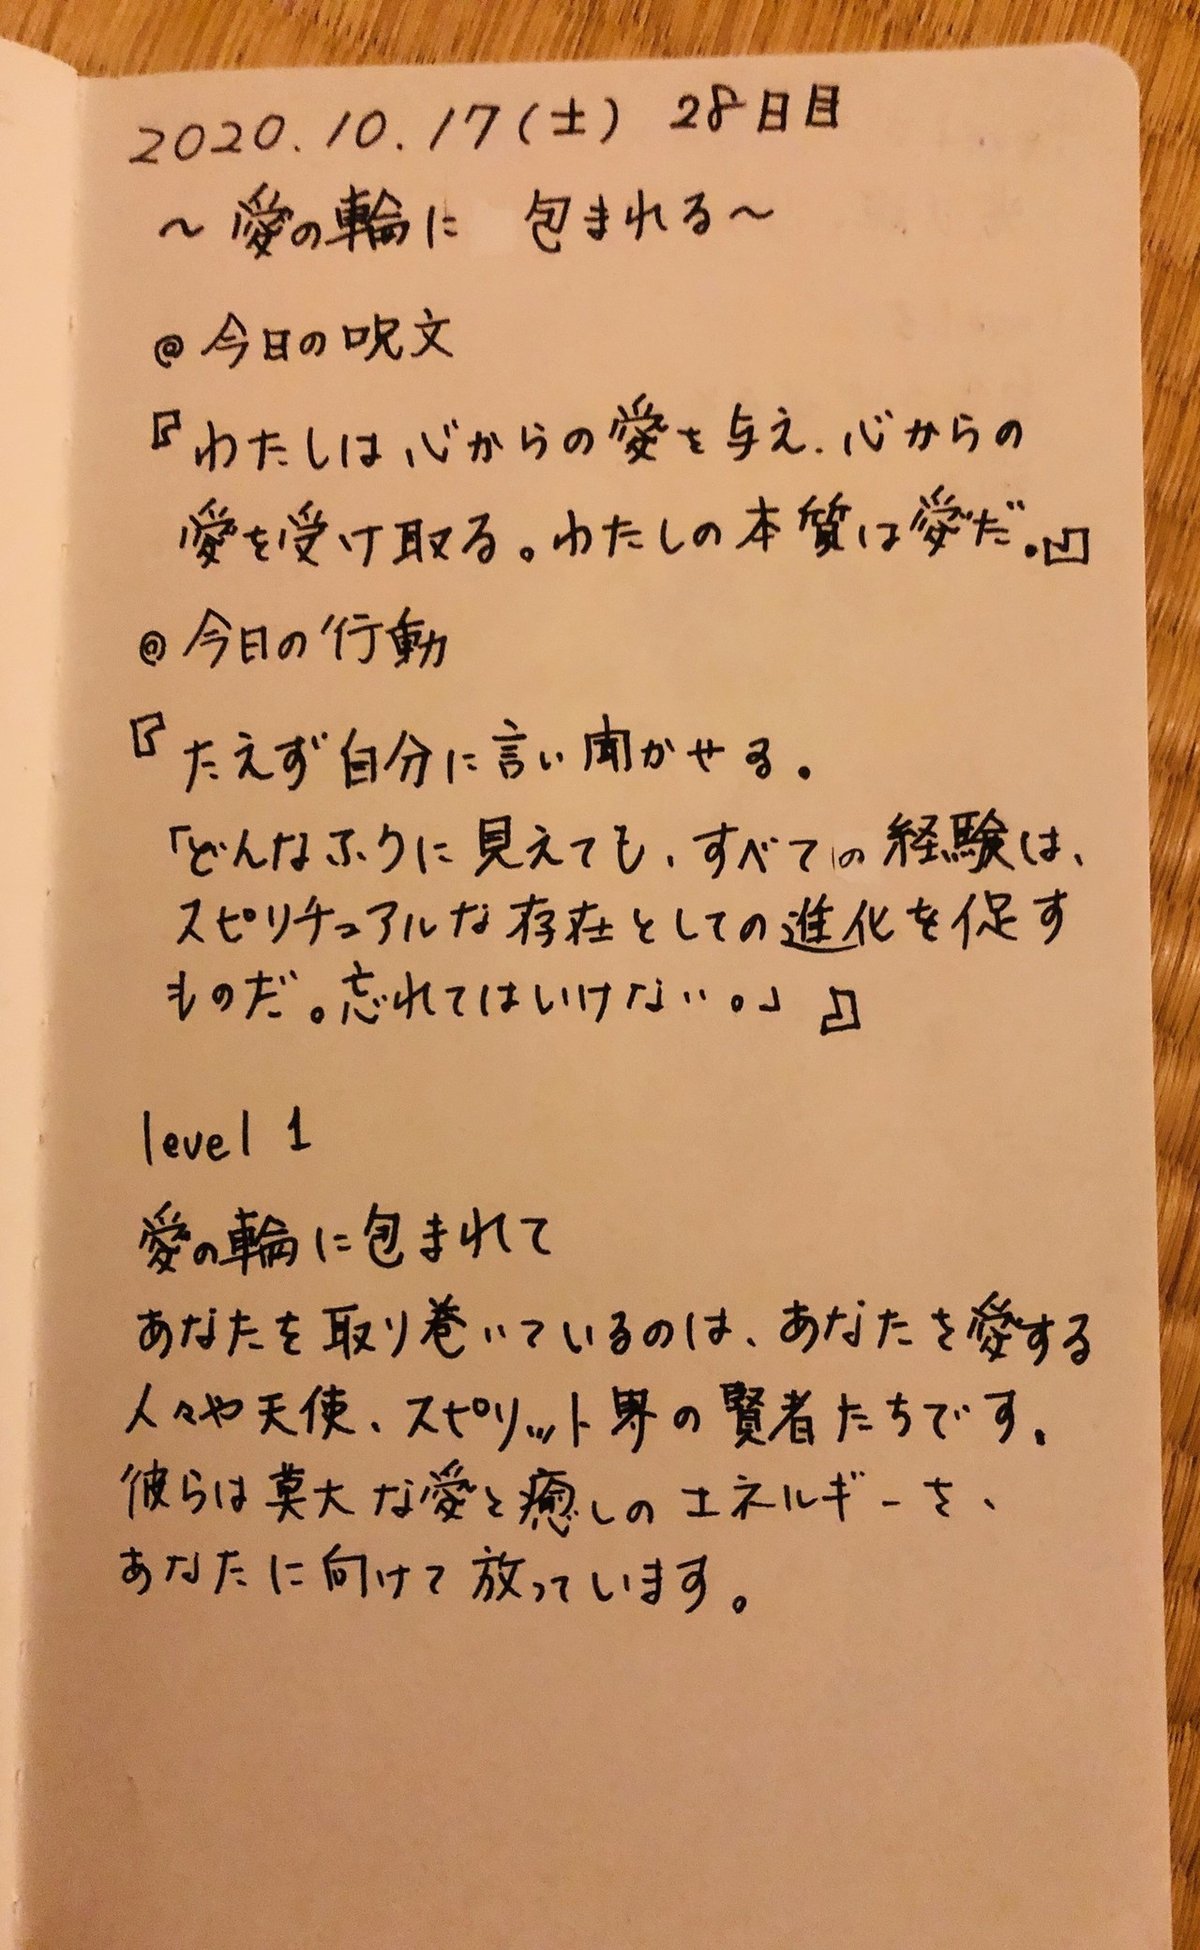 2020.10.17(土) 28日目
〜愛の輪に 包まれる〜
@今日の呪文
『わたしは心からの愛を与え、心からの
愛を受け取る。わたしの本質は愛だ。』
@今日の行動
『たえず自分に言い聞かせる。
「どんなふうに見えても、すべての経験は、
スピリチュアルな存在としての進化を促す
ものだ。忘れてはいけない。」』
level 1
愛の輪に包まれて
あなたを取り巻いているのは、あなたを愛する
人々や天使、スピリット界の賢者たちです。
彼らは莫大な愛と癒しのエネルギーを、
あなたに向けて放っています。